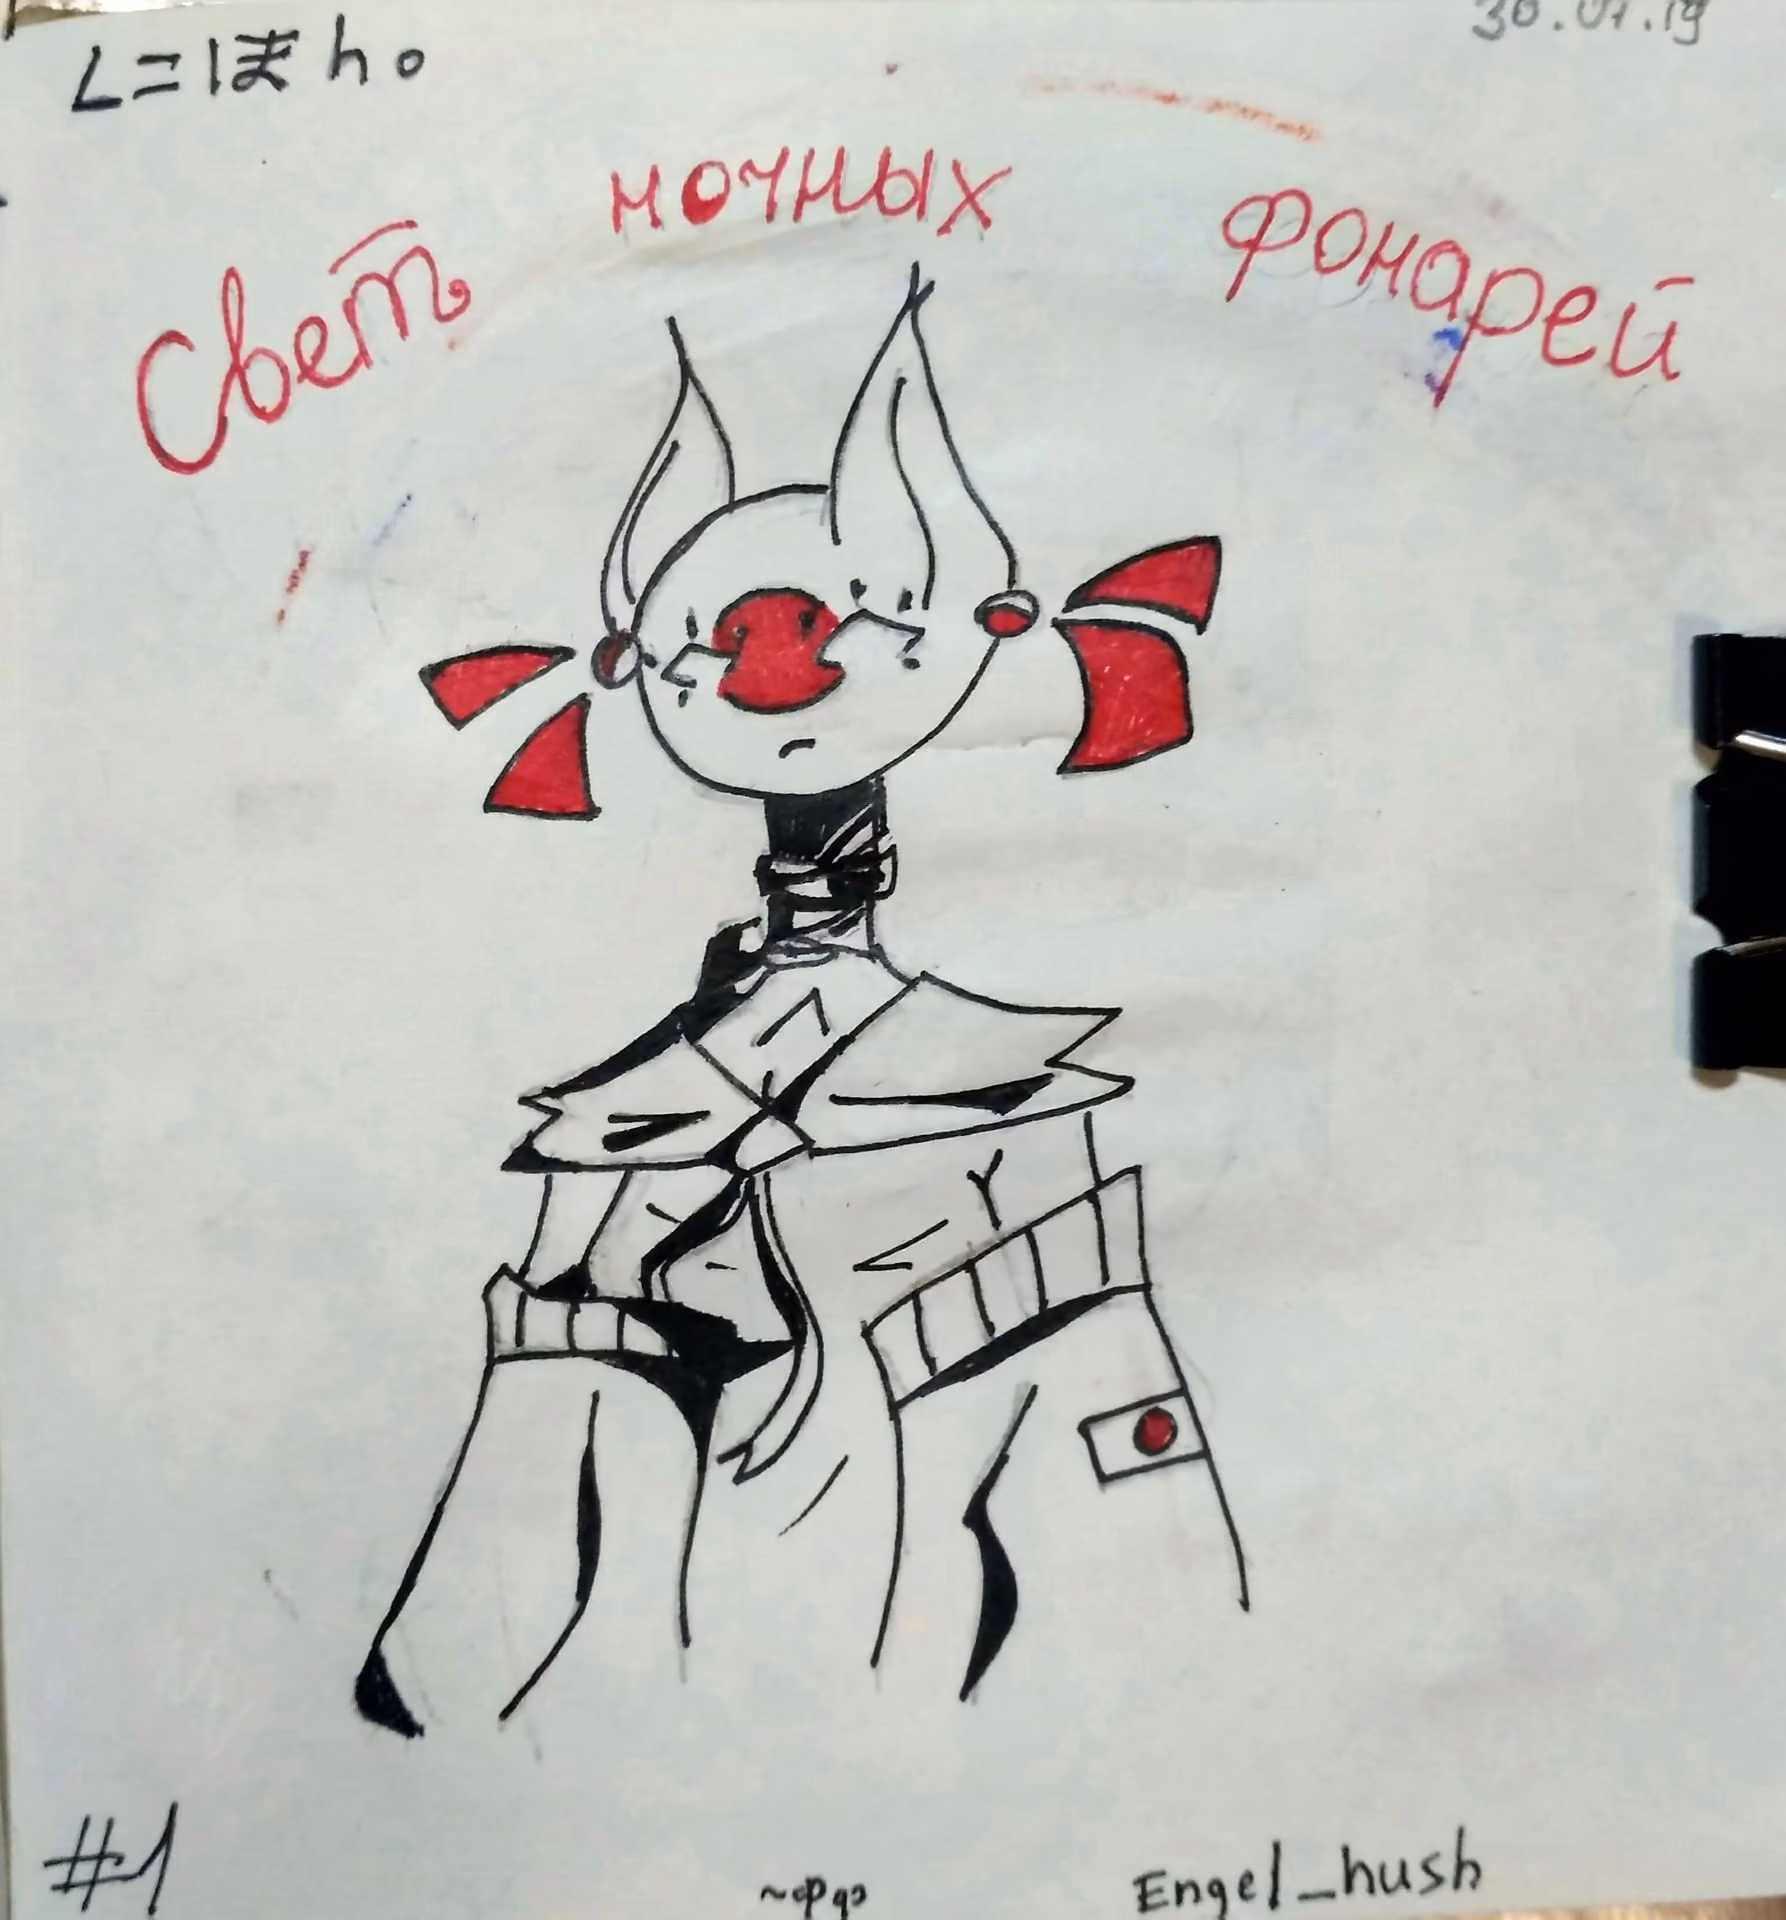 30.07.19
Свет ночных фонарей
#1
Engel_hush